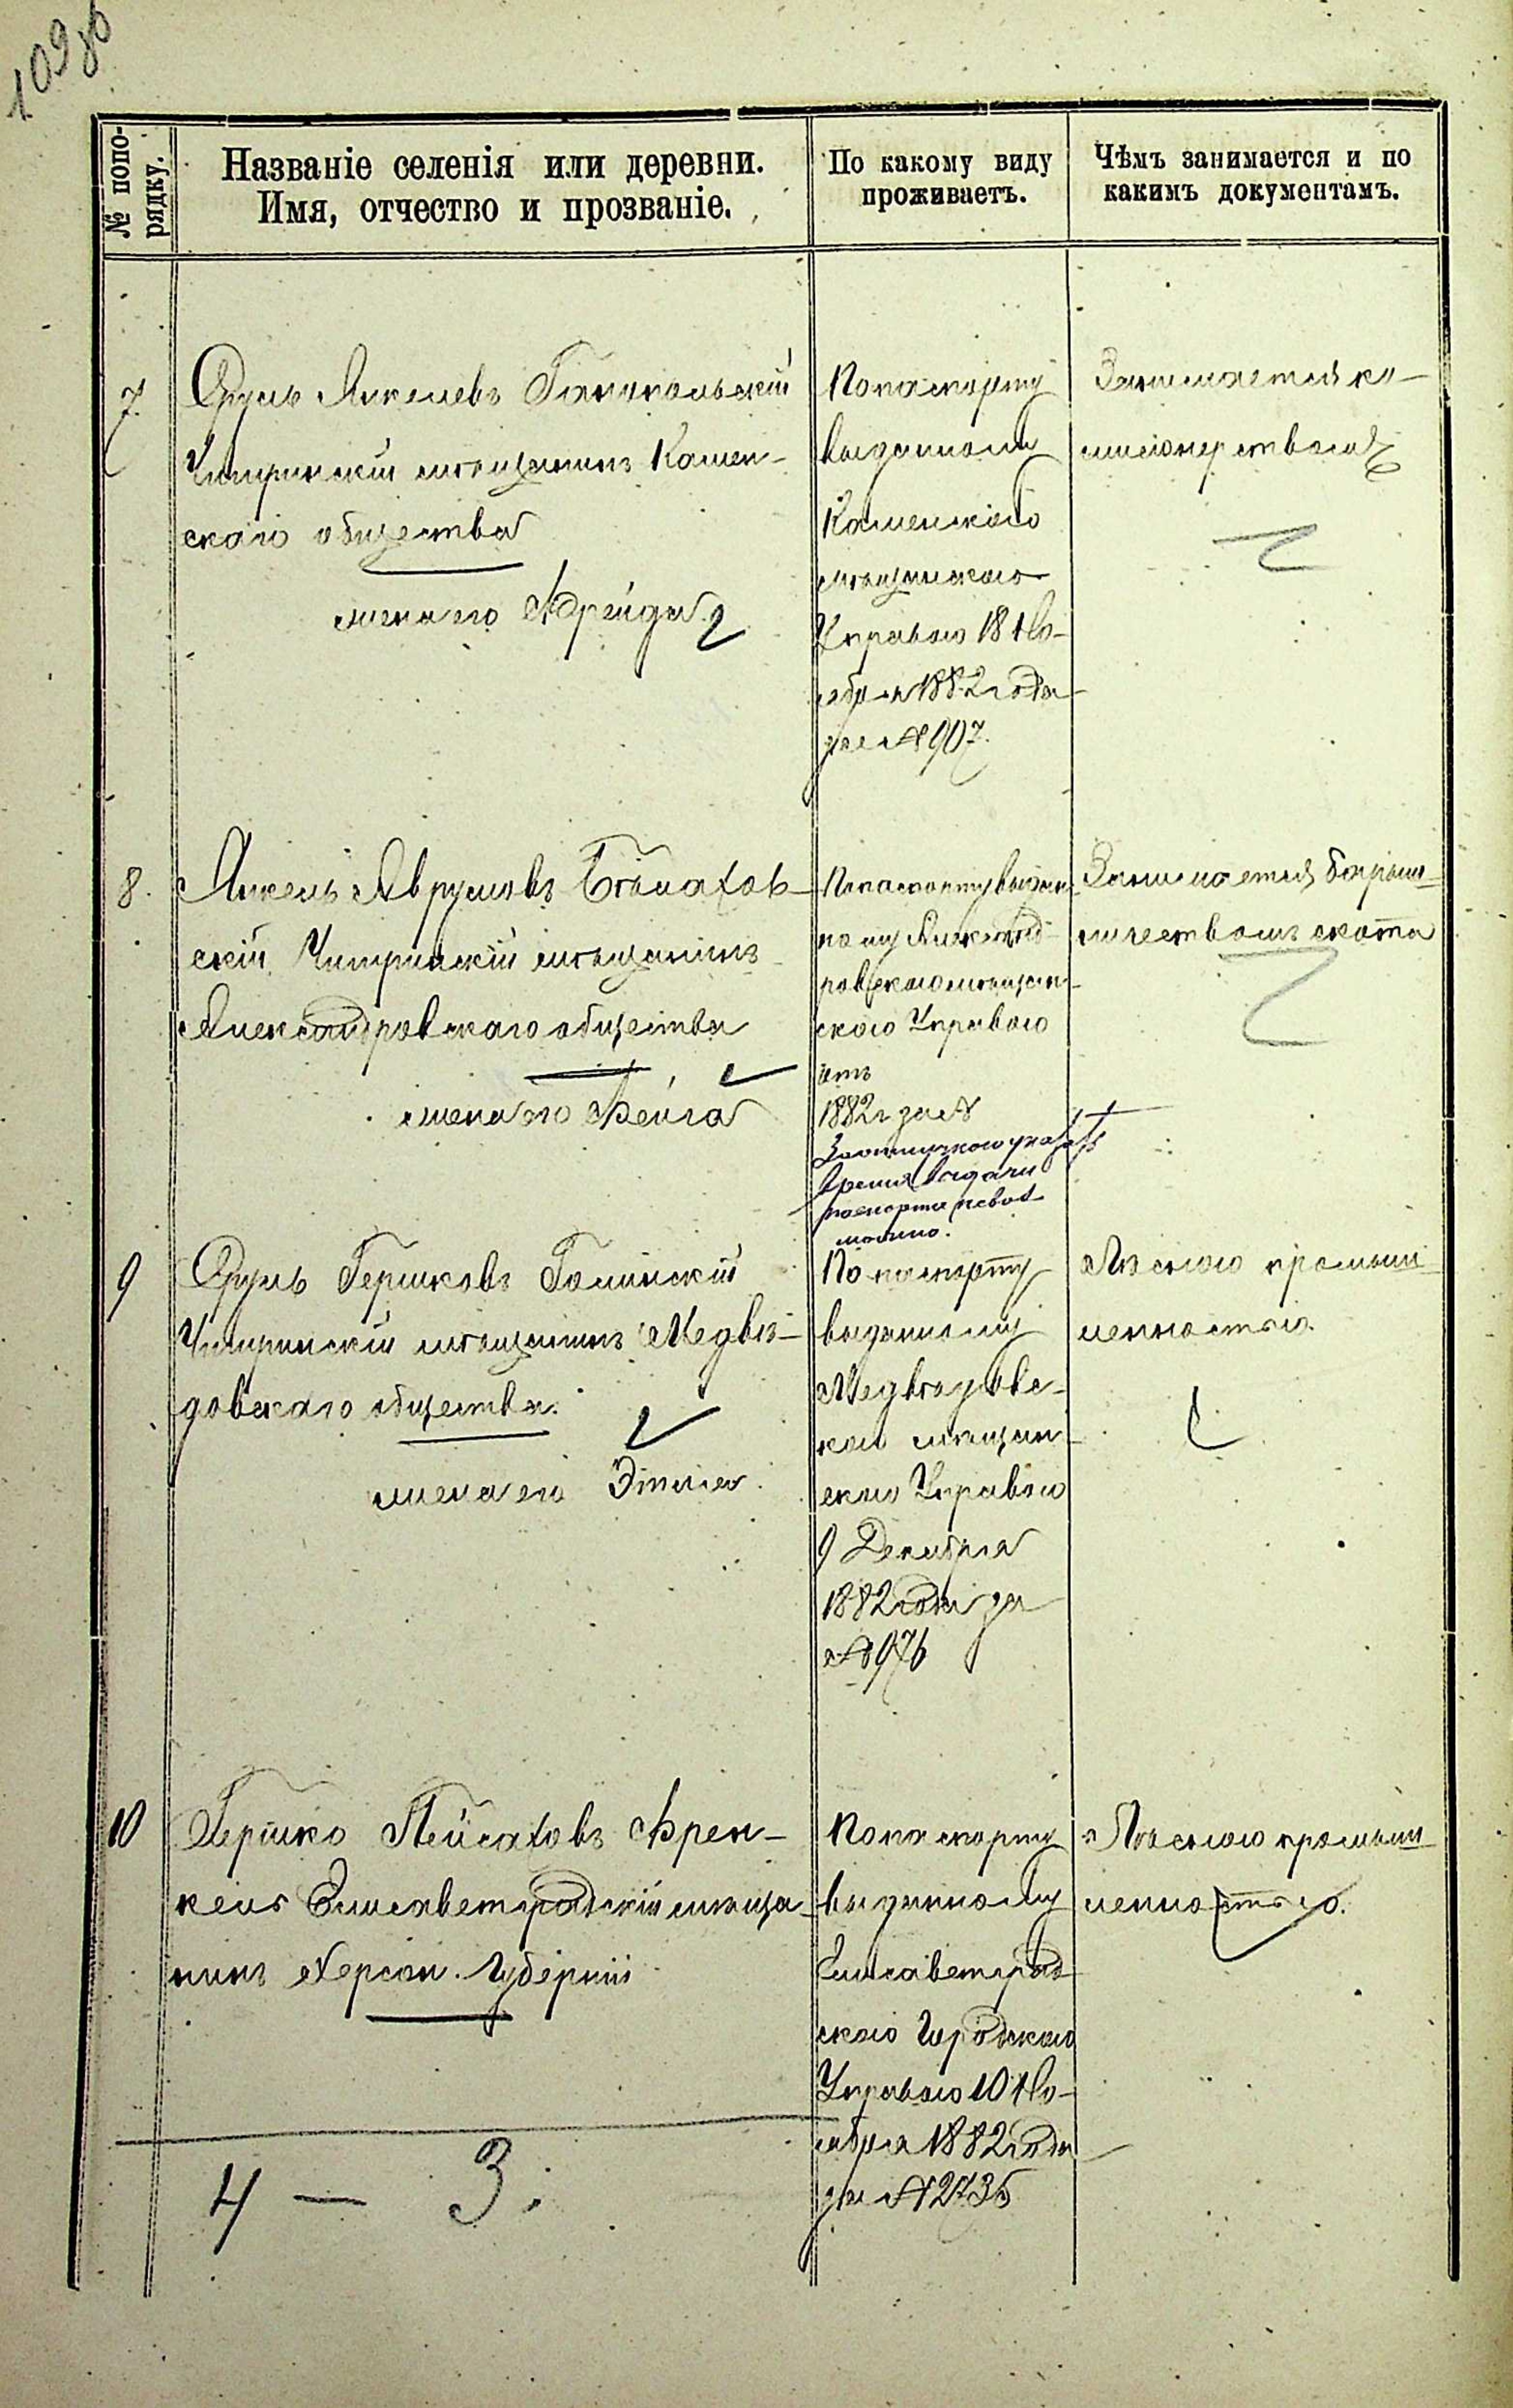 109об
№ по по-
рядку.
Названіе селенія или деревни.
Имя, отчество и прозваніе.
По какому виду
проживаетъ.
Чѣмъ занимается и по
какимъ документамъ.
7.
Сруль Янкелевъ
Чигринскій мѣщанинъ Камен-
скаго общества
жена его Фрейда
По паспорту
выданному
Каменскою
мѣщанскою
Управою 18 Но-
ября 1882 года
за № 907.
Занимается ко-
мисіонерствомъ
8.
Янкель Аврумовъ Бѣлахов-
скій Чигринскій мѣщанинъ
Александровскаго общества
жена его Фейга
По паспорту выдан-
ному Александ-
ровскою мѣщан-
скою Управою
1882 г за №
время выдачи
паспорта невоз-
можно.
Занимается барыш-
ничествомъ скота
9
Сруль Гершковъ Галинскій
Чигринскій мѣщанинъ Медвѣ-
довскаго общества.
жена его Этля
По паспорту
выданному
Медвѣдовс-
кою мѣщан-
скою Управою
9 Декабря
1882 года за
№ 976
Лѣсною промыш-
ленностью
10
Гершко Пейсаховъ Френ-
кель Елисаветградскій мѣща-
нинъ Херсон. Губерніи
По паспорту
выданному
Елисаветград-
скою Городскою
Управою 10 Но-
ября 1882 года
за № 2735
Лѣсною промыш-
ленностью.
4 — 3.